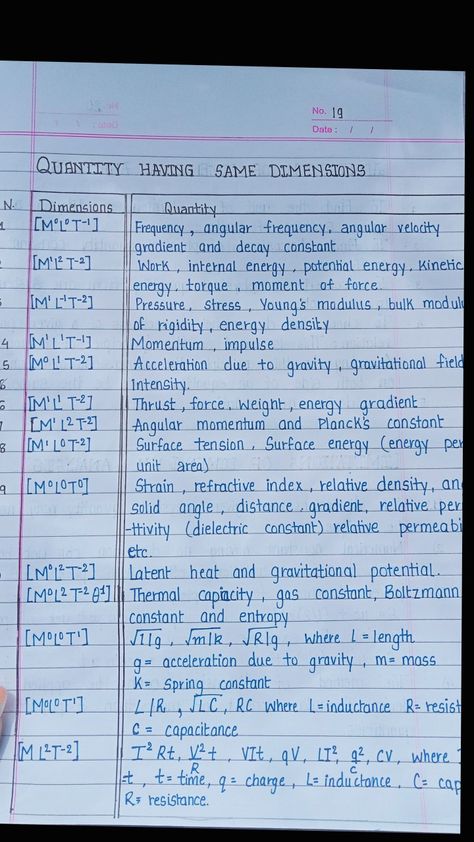 No. 19
Date: / /
QUANTITY HAVING SAME DIMENSIONS
N. Dimensions Quantity
1 [M⁰L⁰T⁻¹] Frequency, angular frequency, angular velocity
gradient and decay constant
[M¹L²T⁻²] Work, internal energy, potential energy, Kinetic
energy, torque, moment of force.
[M¹L⁻¹T⁻²] Pressure, stress, Young's modulus, bulk modul
of rigidity, energy density
4 [M¹L¹T⁻¹] Momentum, impulse
5 [M⁰L¹T⁻²] Acceleration due to gravity, gravitational field
6 Intensity.
6 [M¹L¹T⁻²] Thrust, force, weight, energy gradient
7 [M¹L²T⁻²] Angular momentum and Planck's constant
8 [M¹L⁰T⁻²] Surface tension, Surface energy (energy per
unit area)
9 [M⁰L⁰T⁰] Strain, refractive index, relative density, an
solid angle, distance gradient, relative per
-ttivity (dielectric constant) relative permeabi
etc.
[M⁰L²T⁻²] Latent heat and gravitational potential.
[M⁰L²T⁻²θ¹] Thermal capacity, gas constant, Boltzmann
constant and entropy
[M⁰L⁰T¹] √l/g, √m/k, √R/g, where L = length
g = acceleration due to gravity, m = mass
K = spring constant
[M⁰L⁰T¹] L/R, √LC, RC where L = inductance R = resist
C = capacitance
[ML²T⁻²] I²Rt, V²/R t, VIt, qV, LI², q²/C, CV, where I
t, t = time, q = charge, L = inductance, C = cap
R = resistance.